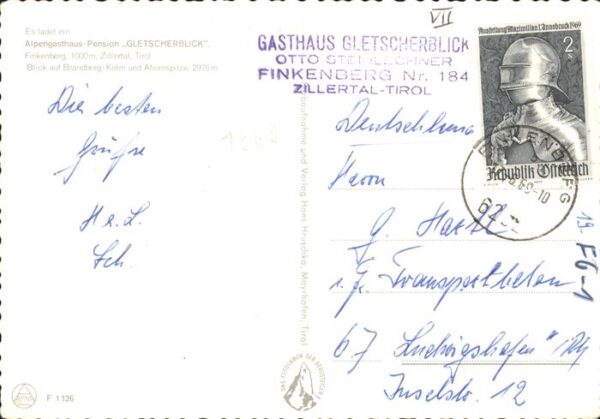 VII
Es ladet ein
Alpengasthaus-Pension „GLETSCHERBLICK".
Finkenberg, 1000m, Zillertal, Tirol
Blick auf Brandberg-Kolm und Ahornspitze, 2976m
GASTHAUS GLETSCHERBLICK
OTTO STEINLECHNER
FINKENBERG Nr. 184
ZILLERTAL-TIROL
Ausstellung Maximilian I. Innsbruck 1969
2 S
Republik Österreich
FINKENBERG
69-10
62
Die besten
Grüße
H.
Sch.
Deutschland
Herrn
G.
i. Fa. Transportbeton
67 Ludwigshafen /Rh
Inselstr. 12
19-F6-1
aufnahme und Verlag Hans Hruschka, Mayrhofen, Tirol
F 1126